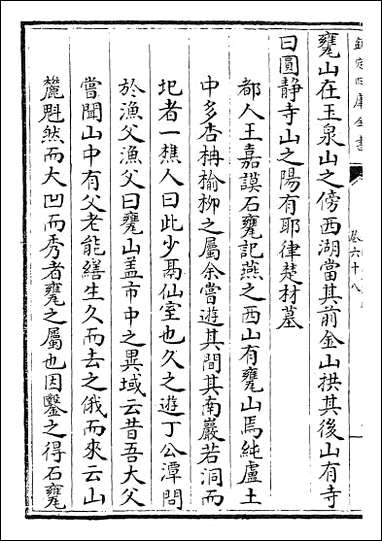 欽定四庫全書
卷六十八
甕山在玉泉山之傍西湖當其前金山拱其後山有寺
曰圓静寺山之陽有耶律楚材墓
都人王嘉謨石甕記燕之西山有甕山焉純盧土
中多杏柟榆柳之屬余嘗遊其間其南巖若洞而
圯者一樵人曰此少鬲仙室也久之遊丁公潭問
於漁父漁父曰甕山盖市中之異域云昔吾大父
嘗聞山中有父老能繕生久而去之俄而來云山
簏魁然而大凹而秀者甕之屬也因鑿之得石甕